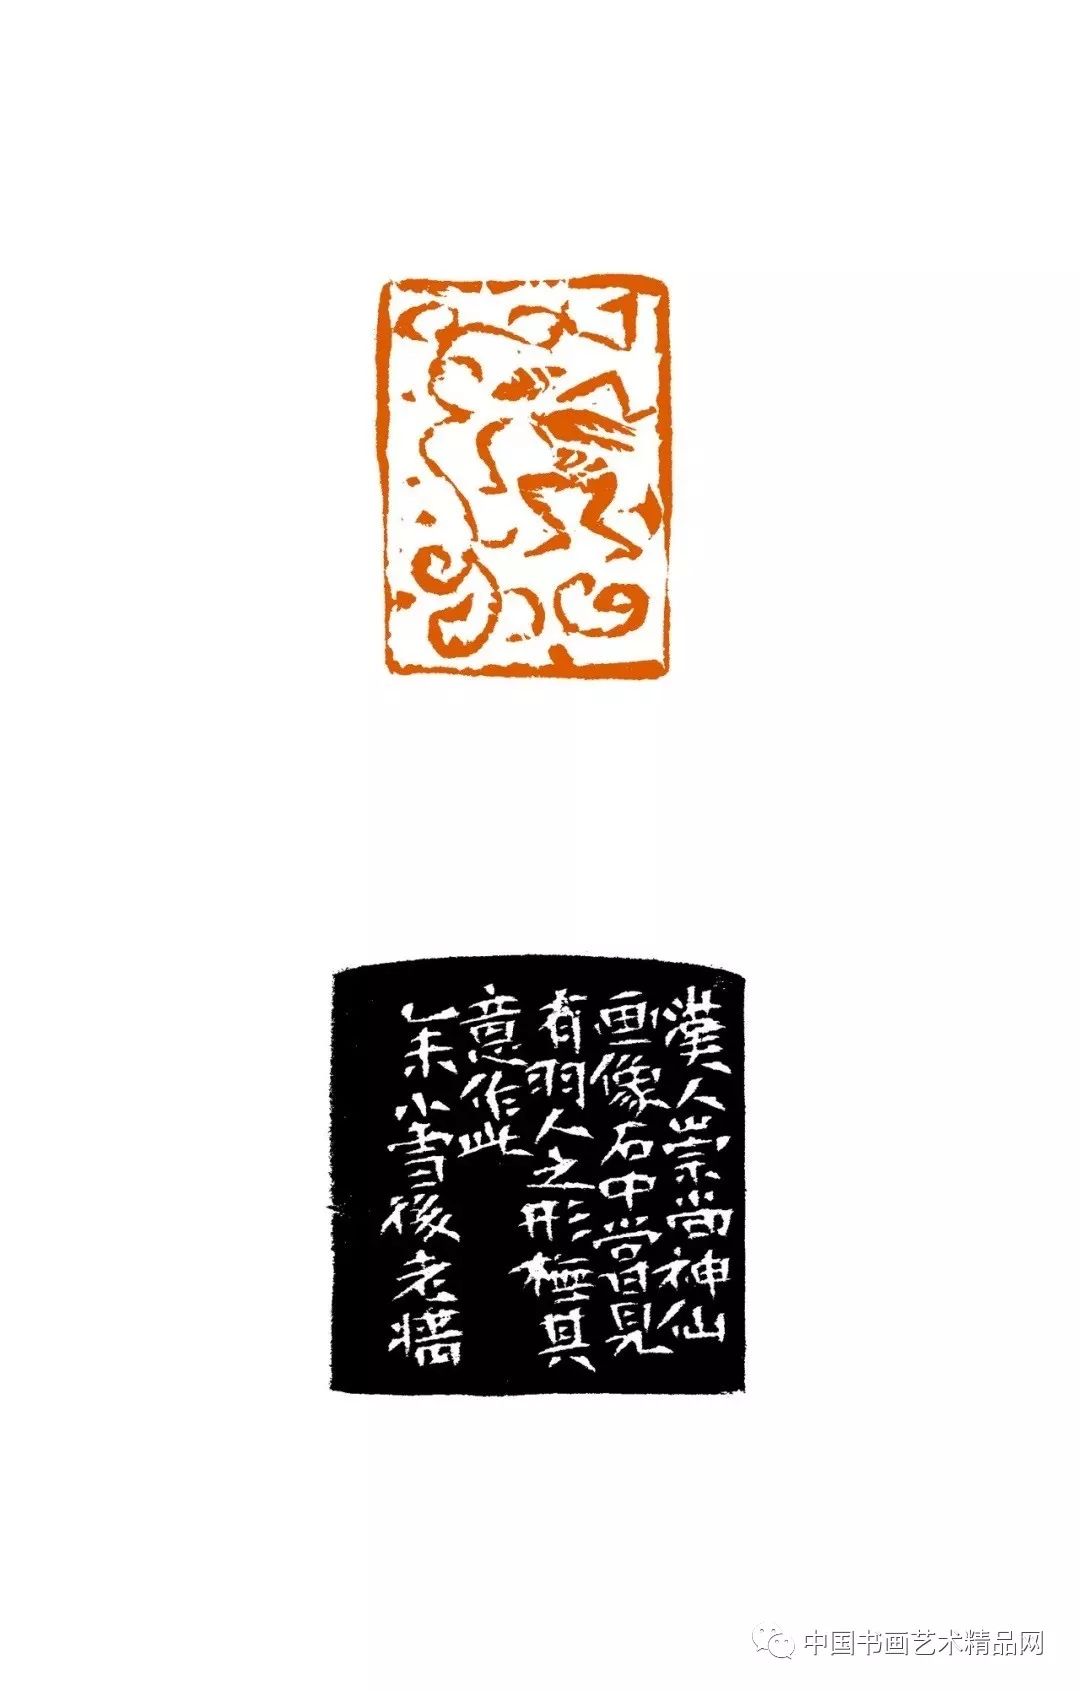 漢人崇尚神仙
画像石中當見
有羽人之形橅其
意作此
乙未小雪後老牆
中国书画艺术精品网